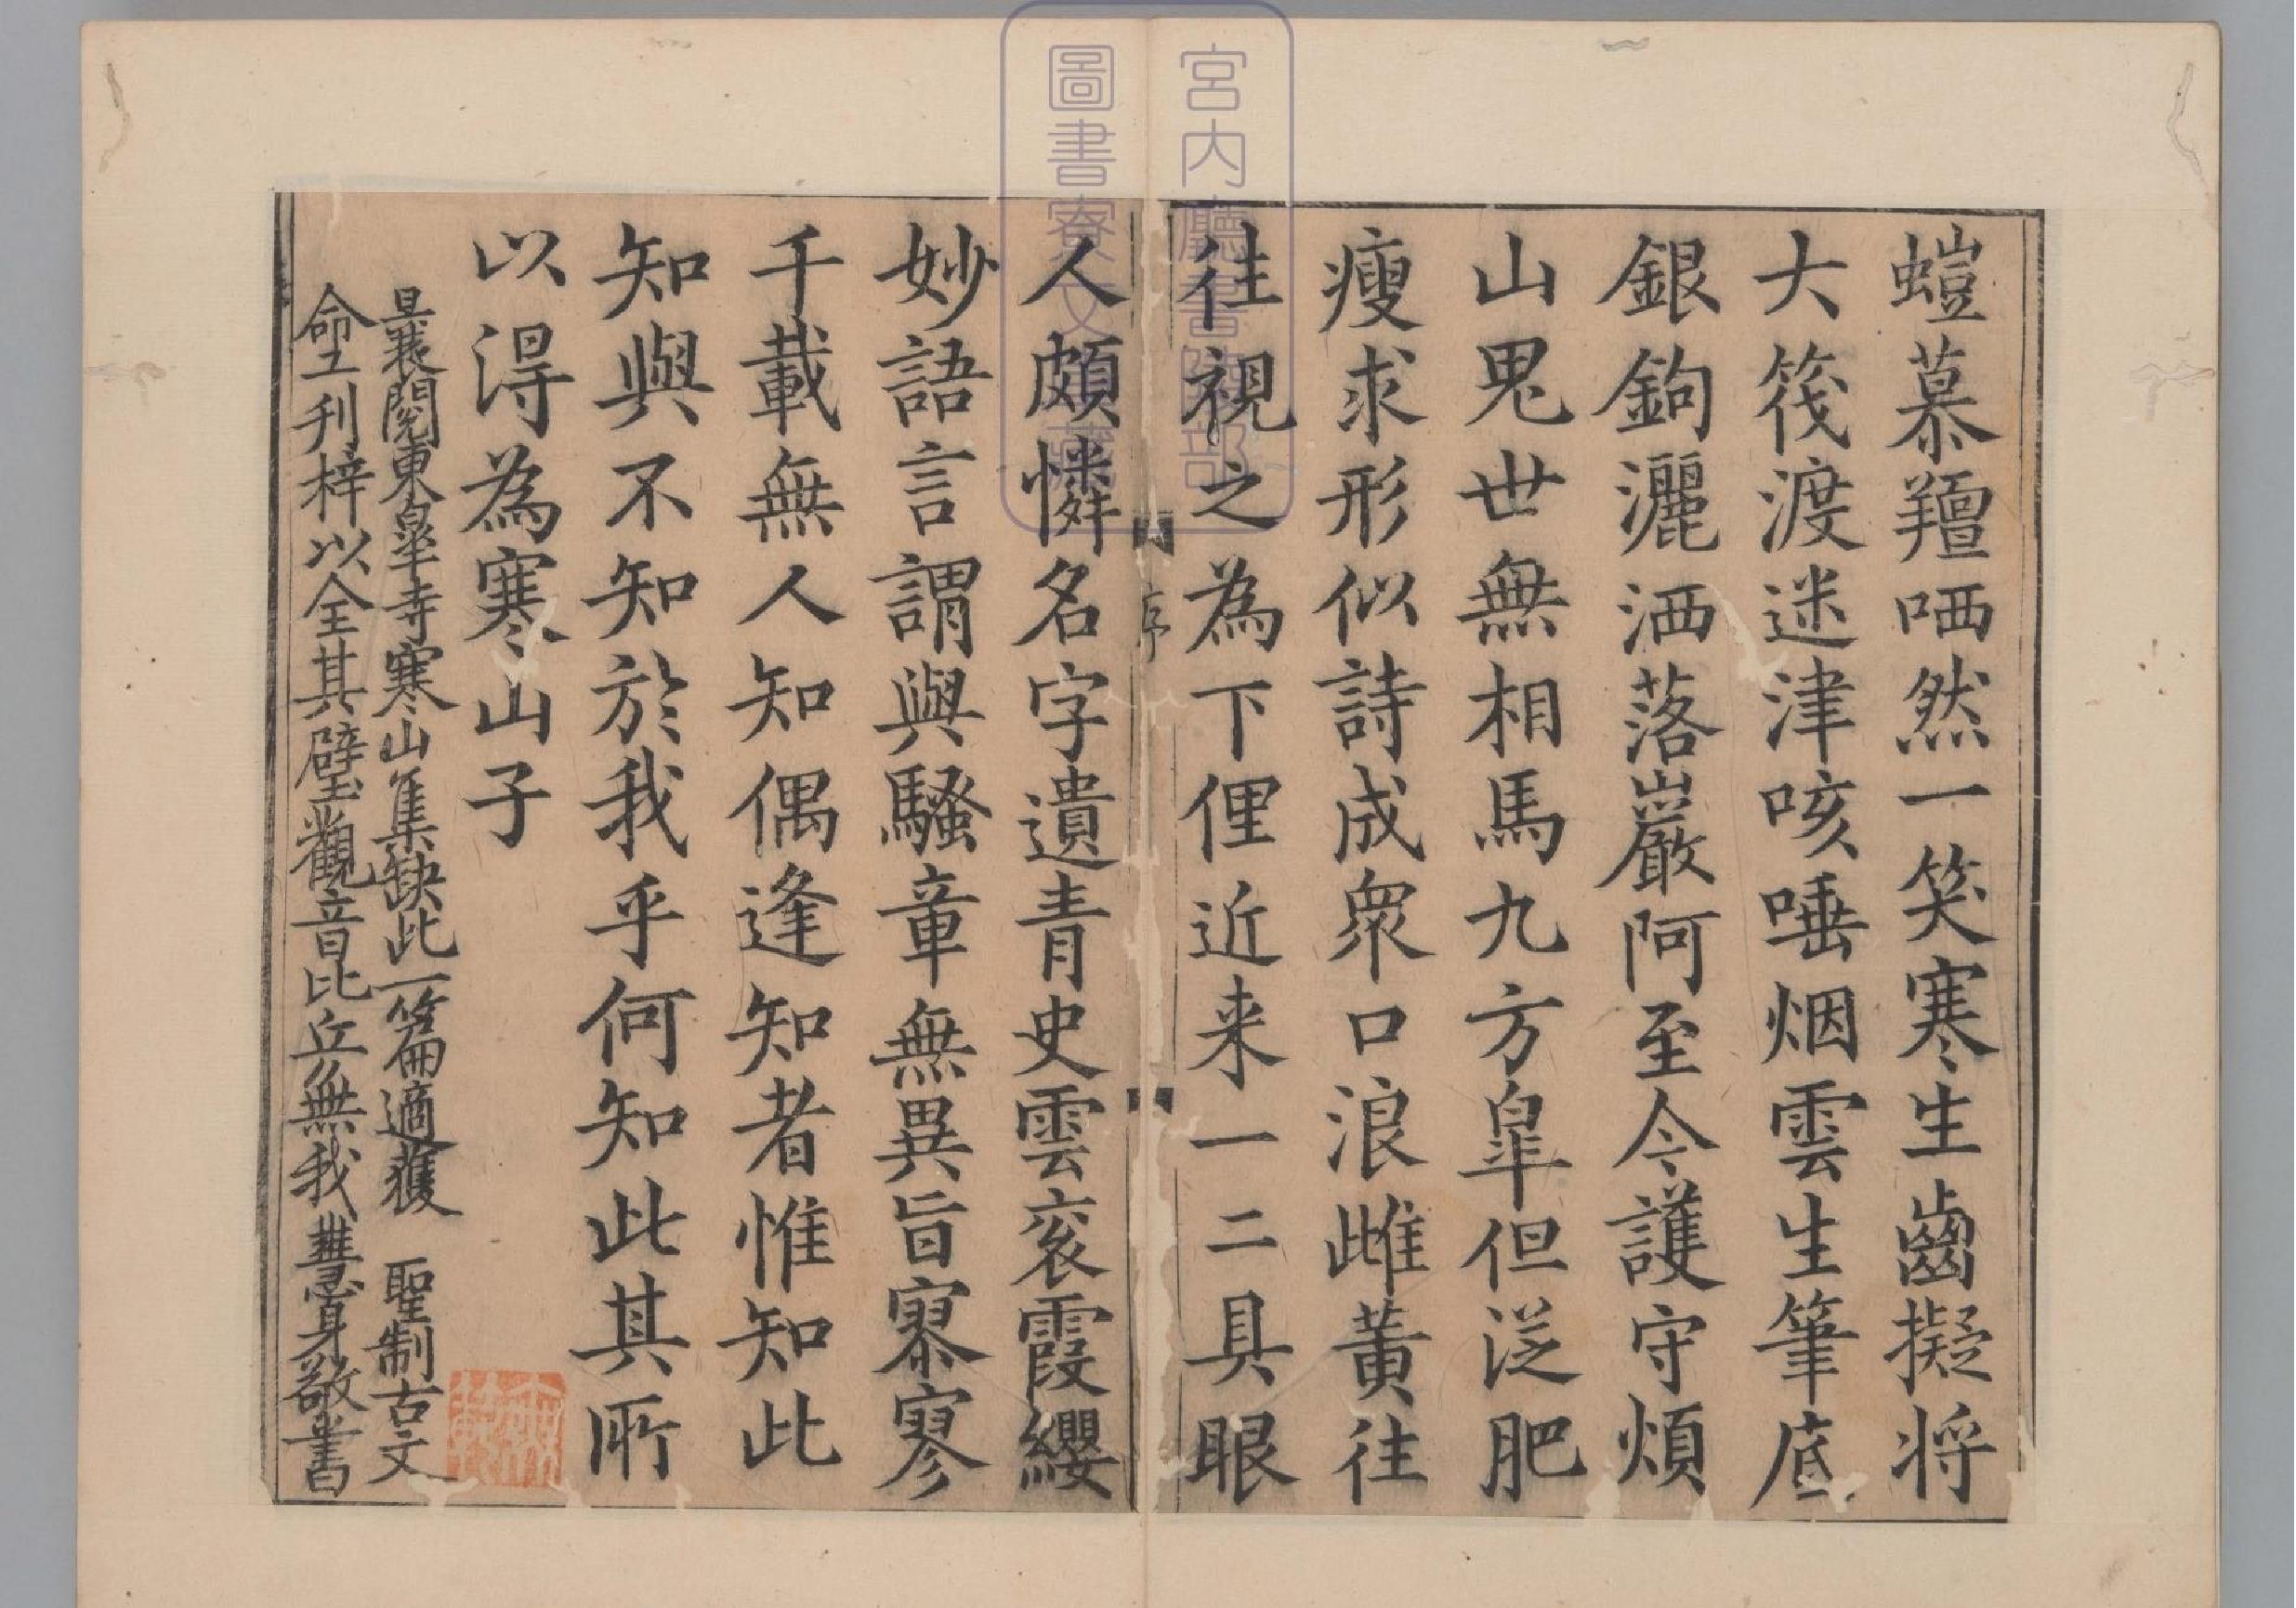 螘慕羶哂然一笑寒生齒擬将
大筏渡迷津咳唾烟雲生筆底
銀鉤灑洒落巖阿至今護守煩
山鬼世無相馬九方臯但泛肥
瘦求形似詩成衆口浪雌黄往
往視之為下俚近来一二具眼
序
人頗憐名字遺青史雲衮霞纓
妙語言謂與騷章無異旨寥寥
千載無人知偶逢知者惟知此
知與不知於我乎何知此其所
以得為寒山子
曩閱東臯寺寒山集缺此一篇適獲 聖制古文
命工刊梓以全其璧觀音比丘無我慧身敬書
宮内廳書陵部
圖書寮文庫